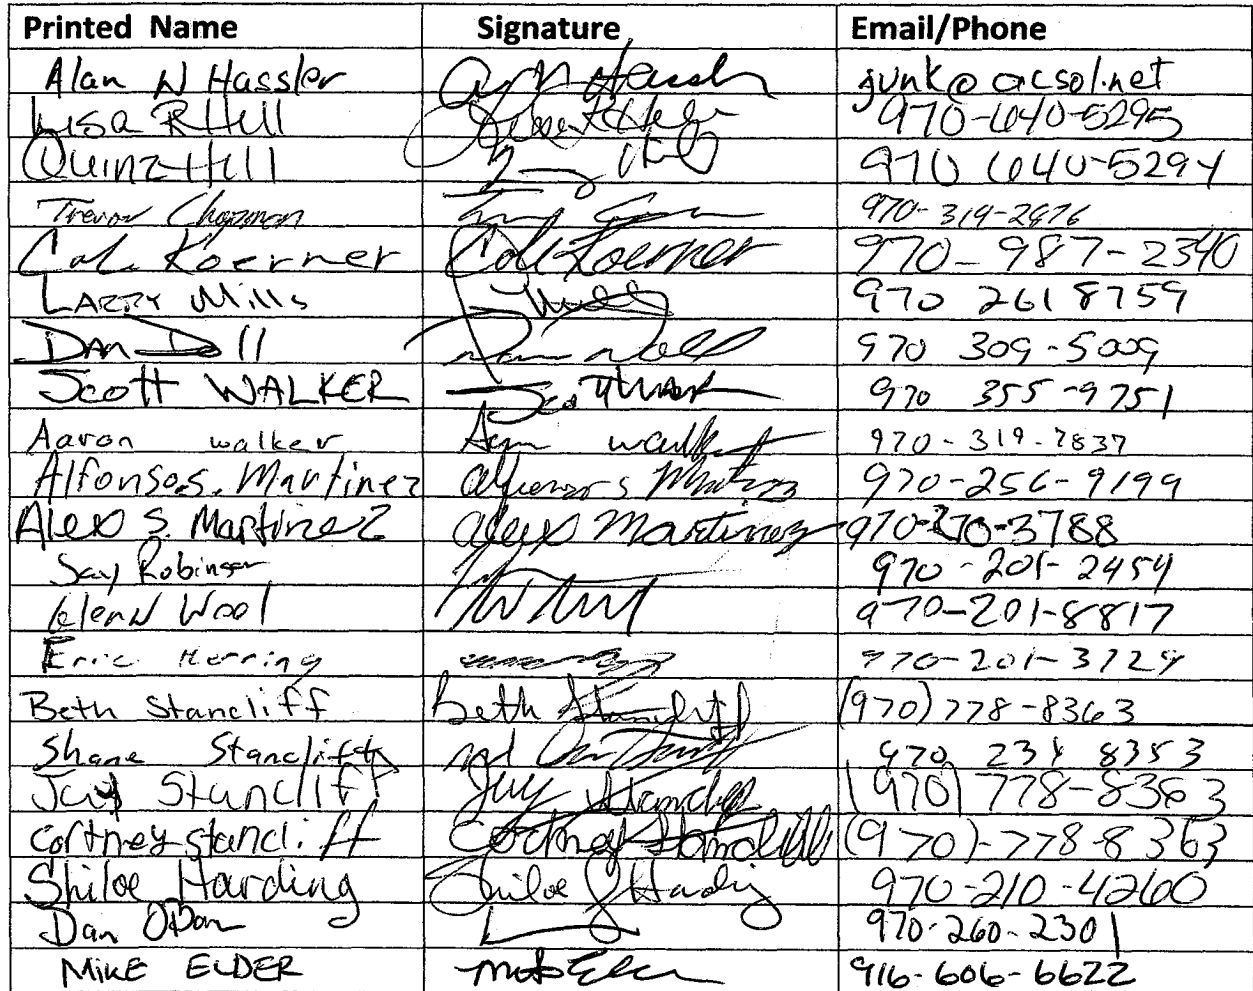 Printed Name Signature Email/Phone
Alan W Hassler junk@acsol.net
Lisa R Hill 970-640-5295
Quinz Hill 970 640-5294
Trevor Chapman 970-319-2676
Cole Koerner Cole Koerner 970-987-2340
LARRY Mills 970 261 8759
DAN Doll Dan Doll 970 309-5009
Scott WALKER 970 355-9751
Aaron walker walker 970-319-7837
Alfonso S. Martinez Alfonso S Martinez 970-256-9199
Alex S. Martinez Alex Martinez 970-270-3788
Robinson 970-201-2454
Glenn Wool 970-201-8817
Eric Herring 970-201-3729
Beth Stancliff Beth Stancliff (970) 778-8363
Shane Stancliff 970 234 8353
Jay Stancliff Jay Stancliff (970) 778-8363
Cortney stancliff Cortney Stancliff (970)-778-8363
Shiloe Harding Shiloe J Harding 970-210-4260
Dan 970-260-2301
MIKE ELDER 916-606-6622